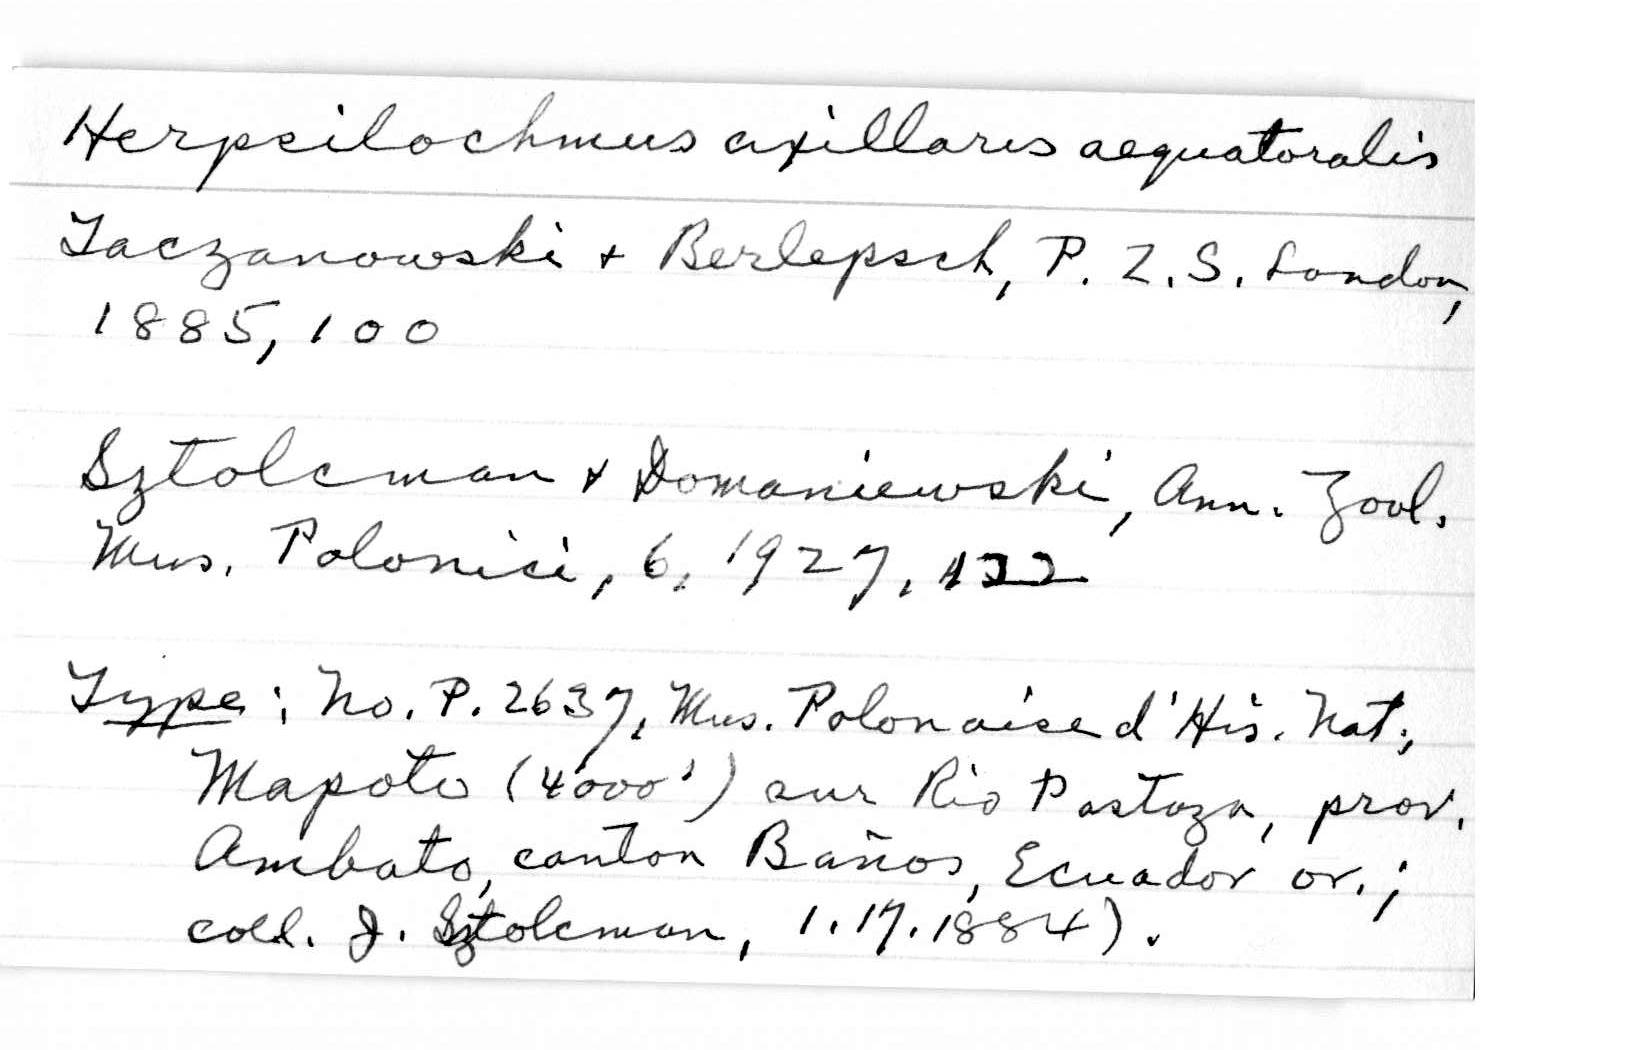 Herpsilochmus axillaris aequatoralis
Taczanowski + Berlepsch, P. Z. S. London,
1885, 100
Sztolcman + Domaniewski, Ann. Zool.
Mus. Polonici, 6, 1927, 122
Type: No. P. 2637, Mus. Polonaise d'His. Nat.;
Mapoto (4000') sur Rio Pastaza, prov.
Ambato, canton Baños, Ecuador or.;
coll. J. Sztolcman, 1.17.1884).